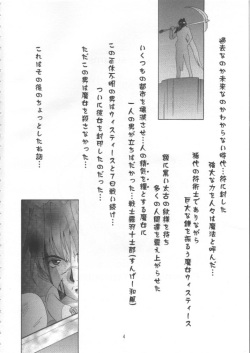 過去なのか未来なのかわからない時代…符に封じた
強大な力を人々は魔法と呼んだ…
稀代の符術士でありながら
巨大な鎌を振るう魔女ウィスティース
鏡に黒い太古の紋様を持ち
多くの人間達を震え上がらせた
いくつもの都市を壊滅させ…人の精気を糧とする魔女に
一人の男が立ちはだかった…戦士霧羽十士郎(すんげー和風)
この正体不明の男はウィスティースと7日戦い続け…
ついに彼女を封印したのだった…
ただこの男は魔女を殺さなかった…
これはその後のちょっとしたお話…